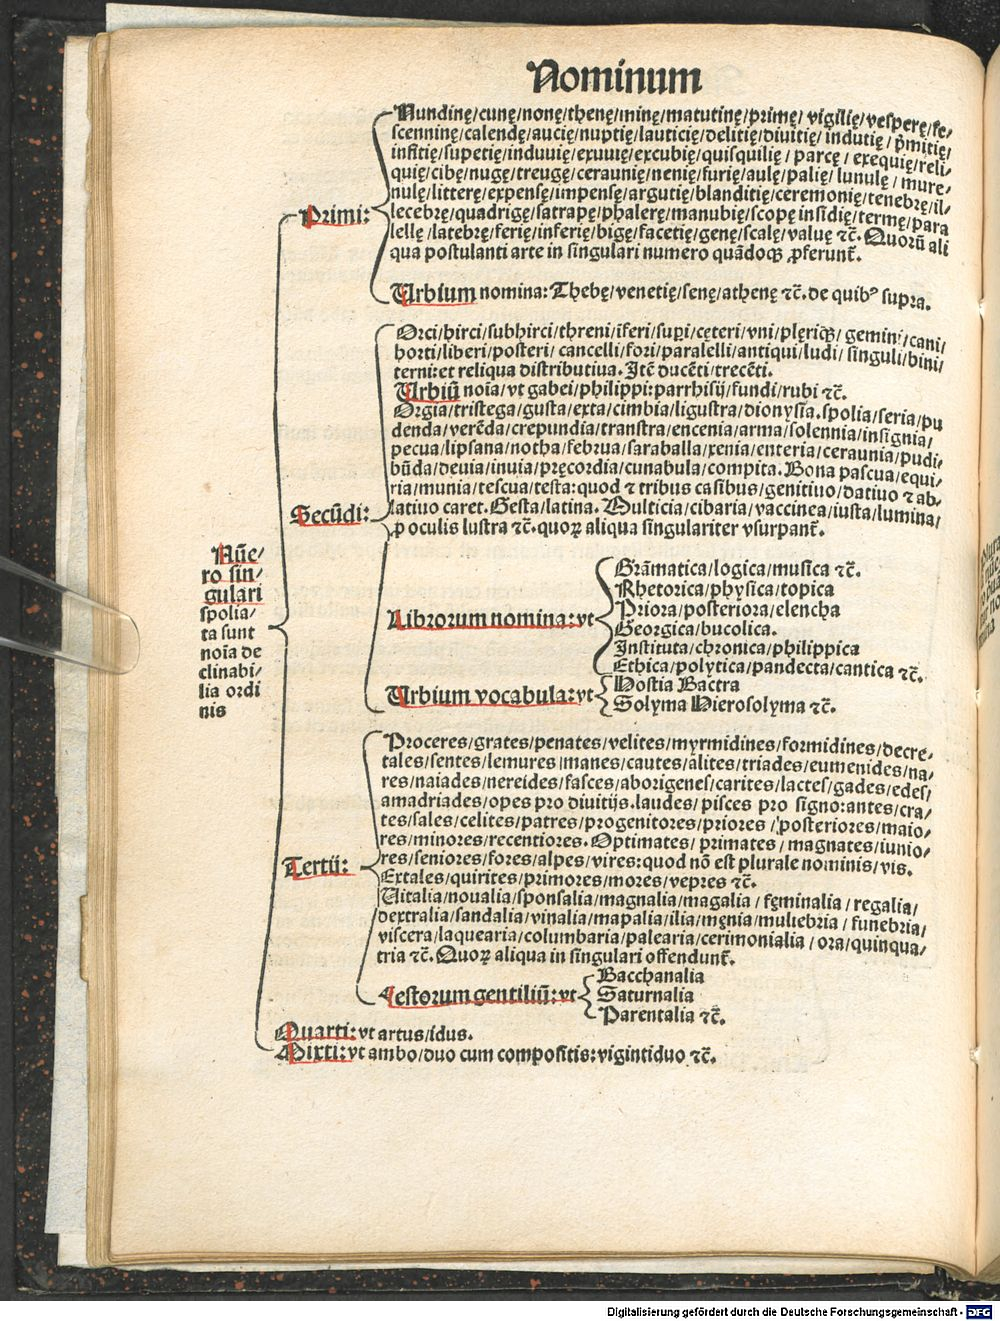 Nominum
Nundinę/cunę/nonę/thenę/minę/matutinę/primę/ vigilię/vesperę/fe/
scenninę/calendę/aucię/nuptię/lauticię/delitię/diuitię/ indutię/ p̄mitię/
infitię/supetię/induuię/exuuię/excubię/quisquilię/ parcę/ exequię/reli/
quię/cibę/nugę/treugę/ceraunię/nenię/furię/aulę/palię/ lunulę/ mure/
nulę/litterę/expensę/impensę/argutię/blanditię/ceremonię/tenebrę/il/
Primi:
lecebrę/quadrigę/satrapę/phalerę/manubię/scopę insidię/termę/para
lellę/latebrę/ferię/inferię/bigę/facetię/genę/scalę/valuę ⁊c̄. Quorū ali
qua postulanti arte in singulari numero quādoqꝫ ꝓferunt̄.
Urbium nomina: Thebę/venetię/senę/athenę ⁊c̄. de quibꝰ supra.
Orci/hirci/subhirci/threni/īferi/suꝑi/cęteri/vni/plęriqꝫ/ gemini/cani/
horti/liberi/posteri/ cancelli/fori/paralelli/antiqui/ludi/ singuli/bini/
terni: et reliqua distributiua. Itē ducēti/trecēti.
Urbiū noīa/vt gabei/philippi: parrhisij/fundi/rubi ⁊c̄.
Orgia/tristega/gusta/exta/cimbia/ligustra/dionysia. spolia/seria/pu
denda/verēda/crepundia/transtra/encenia/arma/solennia/insignia/
pecua/lipsana/notha/februa/saraballa/xenia/enteria/ceraunia/pudi/
būda/deuia/inuia/pręcordia/cunabula/compita. Bona pascua/equi/
ria/munia/tescua/testa: quod ⁊ tribus casibus/genitiuo/datiuo ⁊ ab/
Secūdi:
latiuo caret. Gesta/latina. Multicia/cibaria/vaccinea/iusta/lumina/
ꝓ oculis lustra ⁊c̄. quoꝝ aliqua singulariter vsurpant̄.
Nūe/
ro sin/
gulari
spolia/
ta sunt
noīa de
clinabi/
lia ordi
nis
Librorum nomina: vt
Grāmatica/logica/musica ⁊c̄.
Rhetorica/physica/topica
Priora/posteriora/elencha
Georgica/bucolica.
Instituta/chronica/philippica
Ethica/polytica/pandecta/cantica ⁊c̄.
Urbium vocabula: vt
Hostia Bactra
Solyma Hierosolyma ⁊c̄.
Proceres/grates/penates/velites/myrmidines/formidines/decre/
tales/sentes/lemures/manes/cautes/alites/triades/eumenides/na/
res/naiades/nereides/fasces/aborigenes/carites/lactes/gades/edes/
amadriades/opes pro diuitijs. laudes/ pisces pro signorantes/cra/
tes/sales/celites/patres/progenitores/priores/ posteriores/maio/
res/minores/recentiores. Optimates/ primates/ magnates/iunio/
Tertii:
res/seniores/fores/alpes/vires: quod nō est plurale nominis/vis.
Extales/quirites/primores/mores/vepres ⁊c̄.
Uitalia/noualia/sponsalia/magnalia/magalia/ fęminalia/ regalia/
dextralia/sandalia/vinalia/mapalia/ilia/męnia/muliebria/ funebria/
viscera/laquearia/columbaria/palearia/cerimonialia/ ora/quinqua/
tria ⁊c̄. Quoꝝ aliqua in singulari offendunt̄.
Festorum gentiliū: vt
Bacchanalia
Saturnalia
Parentalia ⁊c̄.
Quarti: vt artus/idus.
Mixti: vt ambo/duo cum compositis: vigintiduo ⁊c̄.
Digitalisierung gefördert durch die Deutsche Forschungsgemeinschaft - DFG